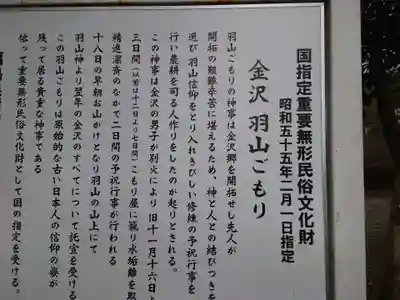 国指定重要無形民俗文化財
昭和五十五年二月一日指定
金沢 羽山ごもり
羽山ごもりの神事は金沢郷を開拓せし先人が
開拓の艱難辛苦に堪えるため、神と人との結びつきを
選び 羽山信仰をとり入れきびしい修練の予祝行事を
行い農耕を司る人作りをしたのが起りとされる。
この神事は金沢の男子が別火により旧十一月十六日よ
三日間(以前は十二日より七日間)こもり屋に籠り水垢離を取
精進潔斎のなかで二日間の予祝行事が行われる
十八日の早朝お山かけとなり羽山の山上にて
羽山神より翌年の金沢のすべてについて託宣を受ける
この羽山ごもりは原始的な古い日本人の信仰の姿が
残って居る貴重な神事である
依って重要無形民俗文化財として国の指定を受ける。